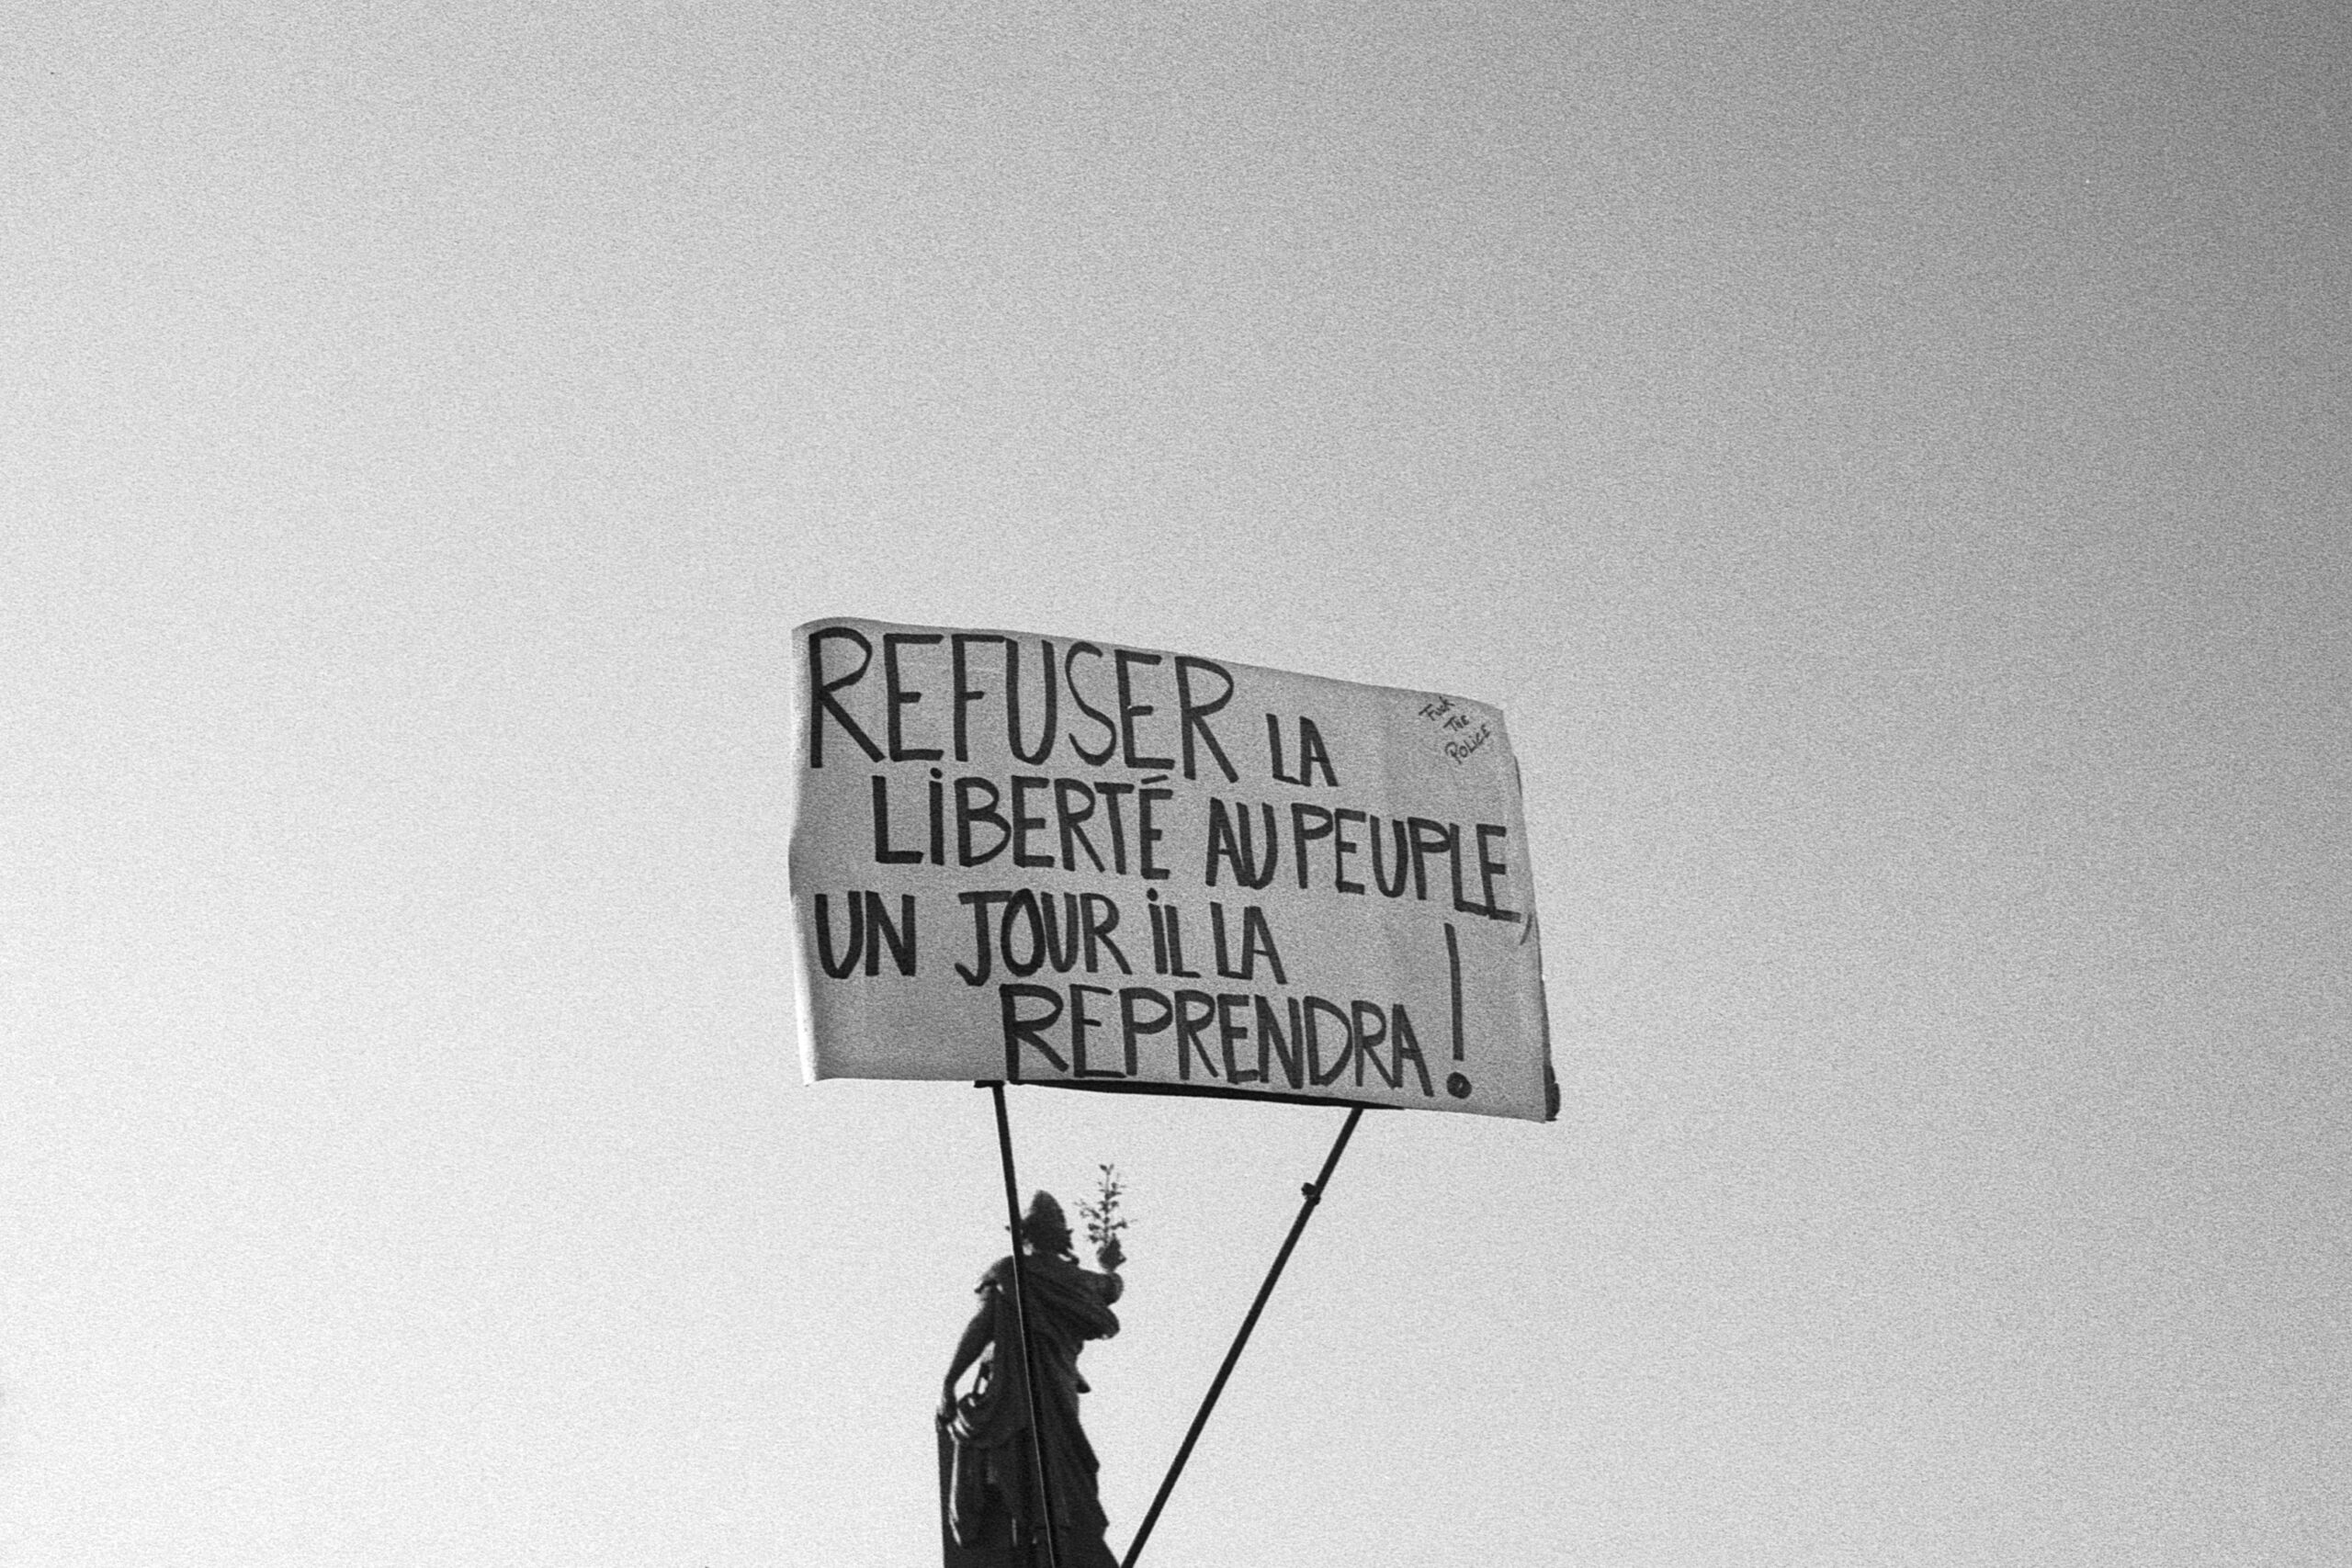 REFUSER LA
LIBERTÉ AU PEUPLE,
UN JOUR IL LA
REPRENDRA!
Fuck
The
Police